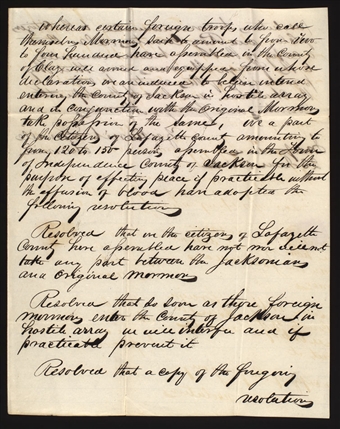 Whereas certain foreign troops who call
themselves Mormons said to amount to from two
to four hundred have assembled in the County
of Clay well armed and by appears from
declaration and intend
entering the County of Jackson in hostile array
and in conjunction with the original Mormons
take possession of the same, We a part
of the Citizens of Lafayette County amounting to
from 120 to 150 persons assembled in the Town
of Independence County of Jackson for the
purpose of effecting peace if practicable without
the effusion of blood have adopted the
following resolutions
Resolved that we the citizens of Lafayette
County here assembled have not nor do
take any part between the Jacksonians
and Original mormons
Resolved that so soon as those foreign
mormons enter the County of Jackson in
hostile array we will interfere and if
practicable prevent it
Resolved that a copy of the foregoing
resolutions